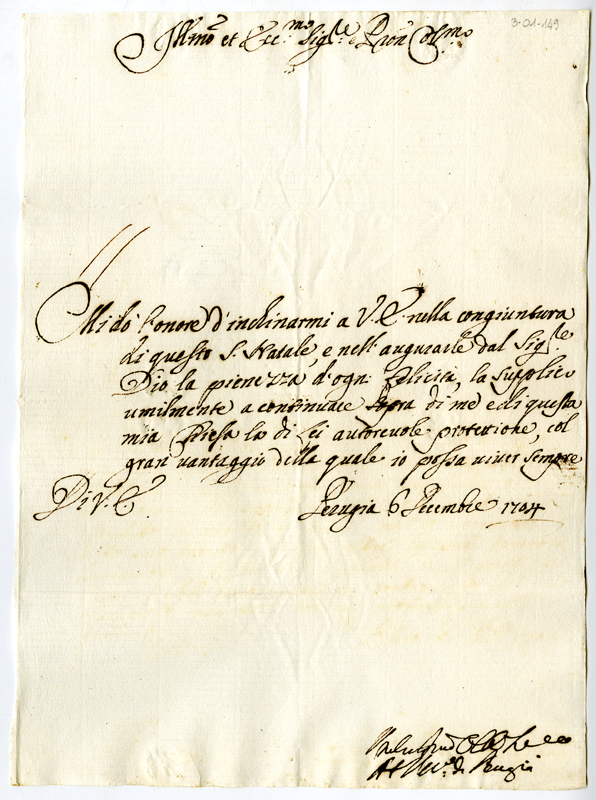 3-01-149
Ill.mo et Ecc.mo Sig.re e Pron Col.mo
Mi dò l'onore d'inchinarmi a V.E. nella congiuntura
di questo S. Natale, e nell'augurarle dal Sig.re
Dio la pienezza d'ogni felicità, la supplico
umilmente a continuare sopra di me e di questa
mia Chiesa la di Lei autorevole protezione, col
gran vantaggio della quale io possa viver sempre
Di V.E.
Perugia 6 Decembre 1704
di Perugia